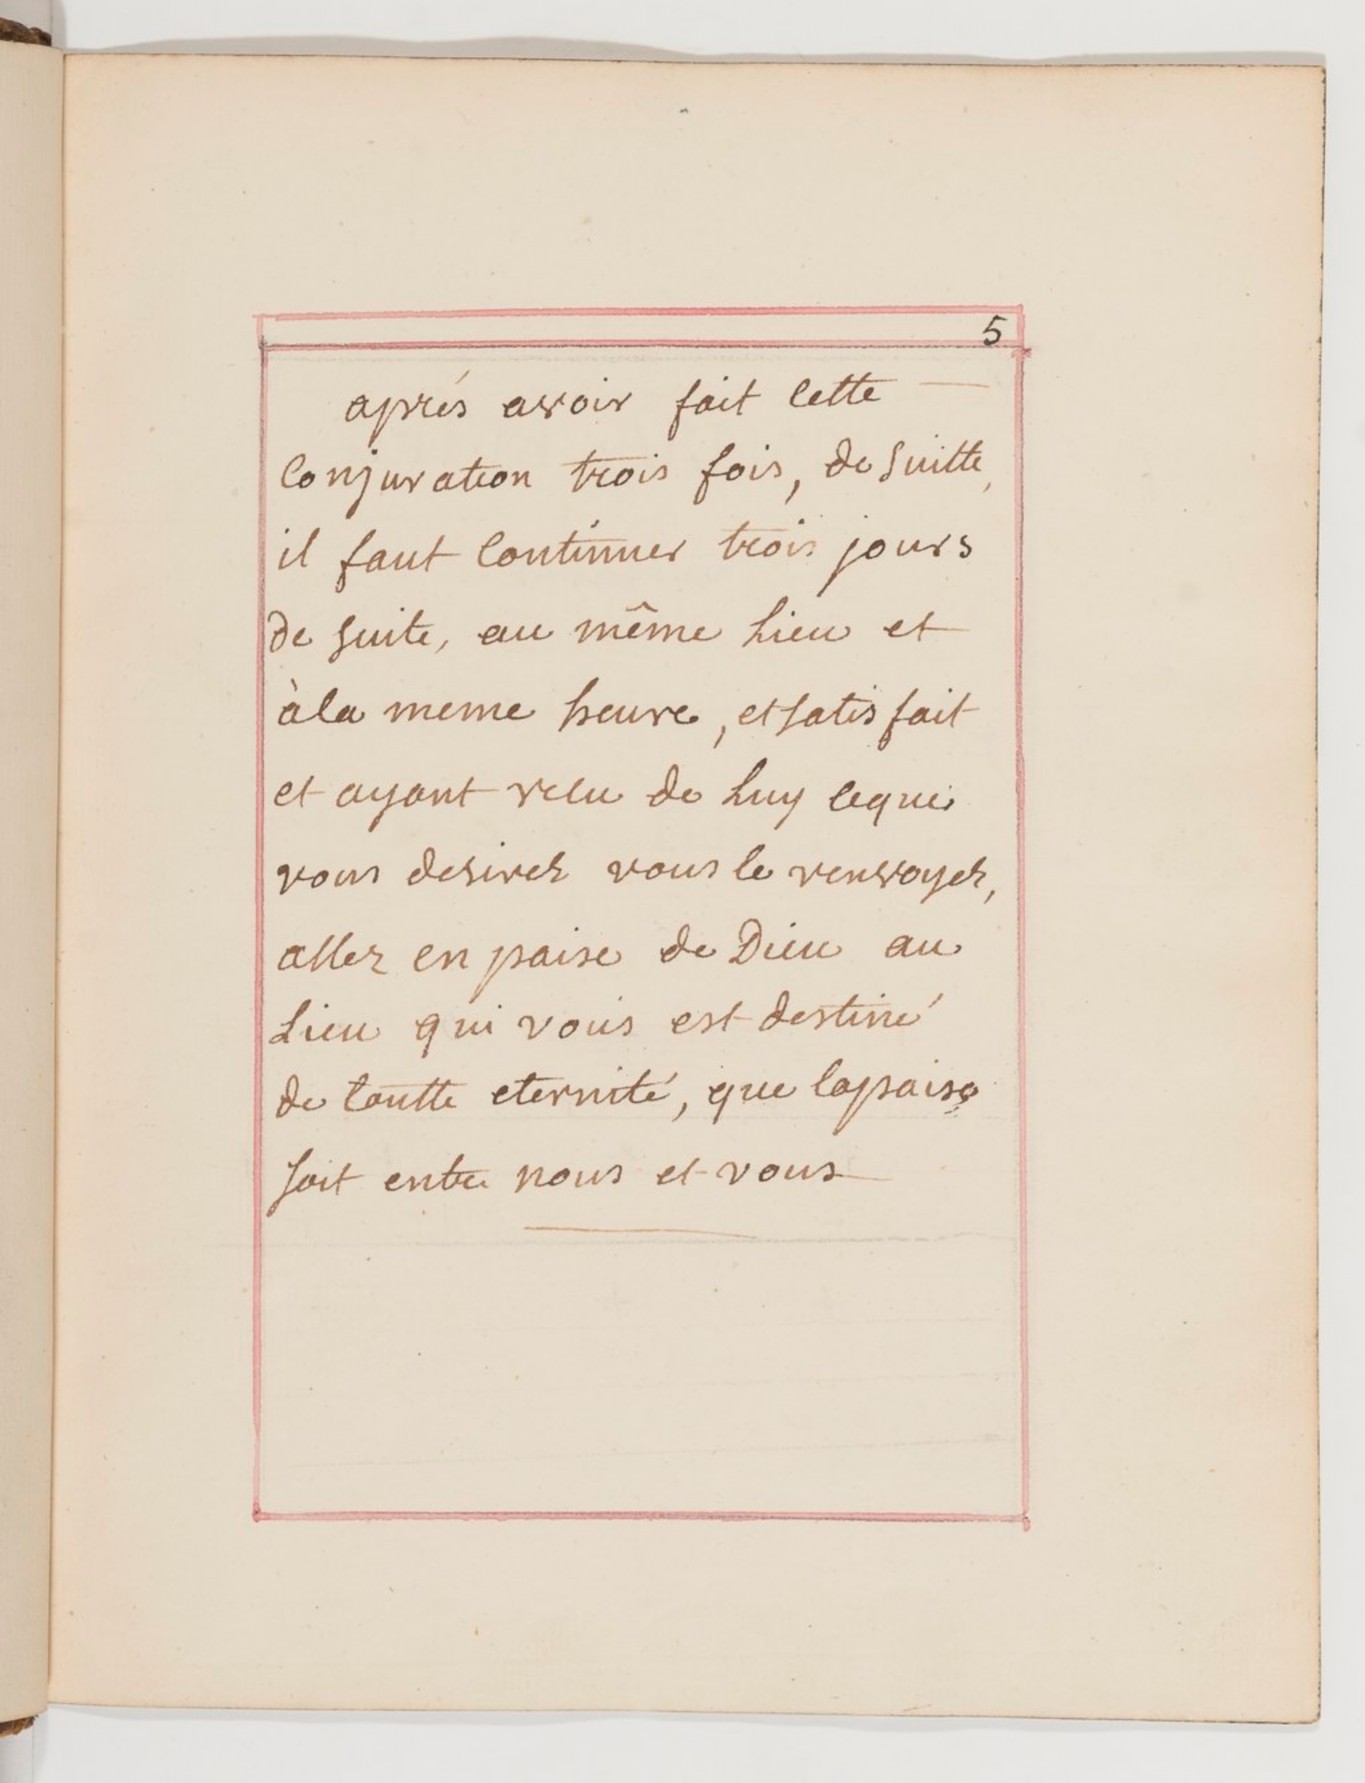 5
après avoir fait cette
Conjuration trois fois, de suitte,
il faut continuer trois jours
de suite, au même Lieu et
à la meme heure, et satisfait
et ayant recu de Luy ceque
vous desirez vous le renvoyez,
allez en paise de Dieu au
Lieu qui vous est destiné
de toutte eternité, que lapaise
soit entre nous et vous